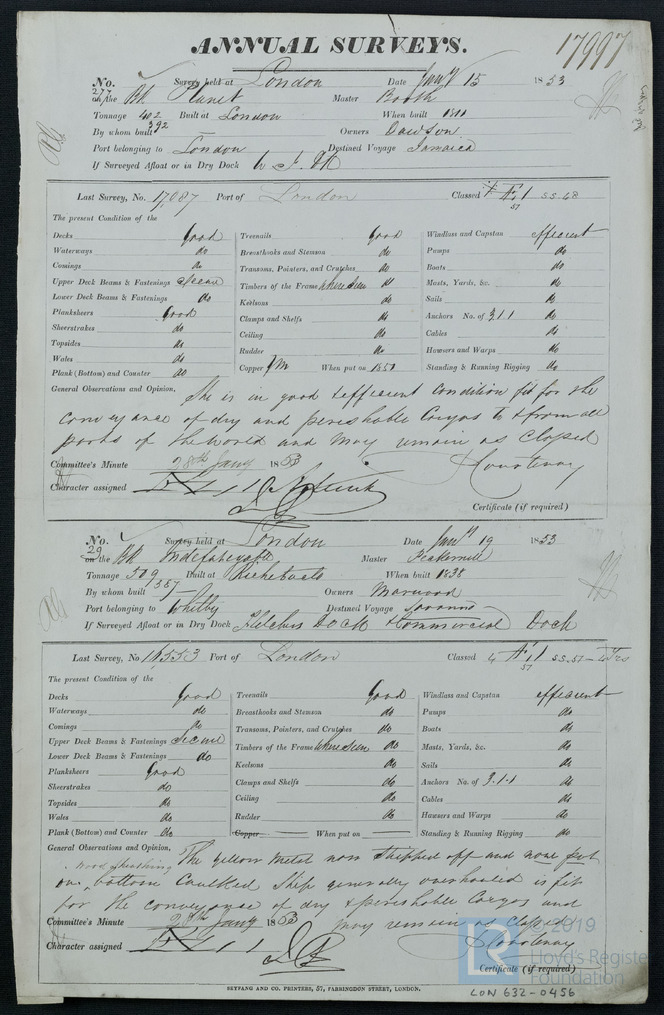 ANNUAL SURVEYS.
17997
No. 277 Survey held at London Date Jany 15 1853
on the Bk Planet Master Booth
Tonnage 402 392 Built at London When built 1811
By whom built Owners Dawson
Port belonging to London Destined Voyage Jamaica
If Surveyed Afloat or in Dry Dock
Last Survey, No. 17087 Port of London Classed Æ 1 57 SS.48
The present Condition of the
Decks Good Treenails Good Windlass and Capstan efficient
Waterways do Breasthooks and Stemson do Pumps do
Comings do Transoms, Pointers, and Crutches do Boats do
Upper Deck Beams & Fastenings Secure Timbers of the Frame where seen do Masts, Yards, &c. do
Lower Deck Beams & Fastenings do Keelsons do Sails do
Planksheers Good Clamps and Shelfs do Anchors No. of 3.1.1 do
Sheerstrakes do Ceiling do Cables do
Topsides do Rudder do Hawsers and Warps do
Wales do Copper YM When put on 1850 Standing & Running Rigging do
Plank (Bottom) and Counter do
General Observations and Opinion, She is in good & efficient condition fit for the
conveyance of dry and perishable Cargos to & from all
ports of the world and may remain as Classed
Committee's Minute 28th Jany 1853 Courtenay
Character assigned Æ 1
Certificate (if required)
No. 29 Survey held at London Date Jany 19 1853
on the Bk Indefatigable Master
Tonnage 509 557 Built at When built 1838
By whom built Owners Marwood
Port belonging to Whitby Destined Voyage
If Surveyed Afloat or in Dry Dock Fletchers Dock & Commercial Dock
Last Survey, No 16553 Port of London Classed 4 Æ 1 57 SS.51 - 4 Yrs
The present Condition of the
Decks Good Treenails Good Windlass and Capstan efficient
Waterways do Breasthooks and Stemson do Pumps do
Comings do Transoms, Pointers, and Crutches do Boats do
Upper Deck Beams & Fastenings Secure Timbers of the Frame where seen do Masts, Yards, &c. do
Lower Deck Beams & Fastenings do Keelsons do Sails do
Planksheers Good Clamps and Shelfs do Anchors No. of 3.1.1 do
Sheerstrakes do Ceiling do Cables do
Topsides do Rudder do Hawsers and Warps do
Wales do Copper When put on Standing & Running Rigging do
Plank (Bottom) and Counter do
General Observations and Opinion, The yellow metal now stripped off and none put
on, wood sheathing bottom Caulked Ship generally overhauled is fit
for the conveyance of dry & perishable Cargos and
Committee's Minute 28th Jany 1853 may remain as Classed
Character assigned Æ 1 Courtenay
Certificate (if required)
© 2019
Lloyd's Register
Foundation
SEYFANG AND CO. PRINTERS, 57, FARRINGDON STREET, LONDON.
LON 632-0456